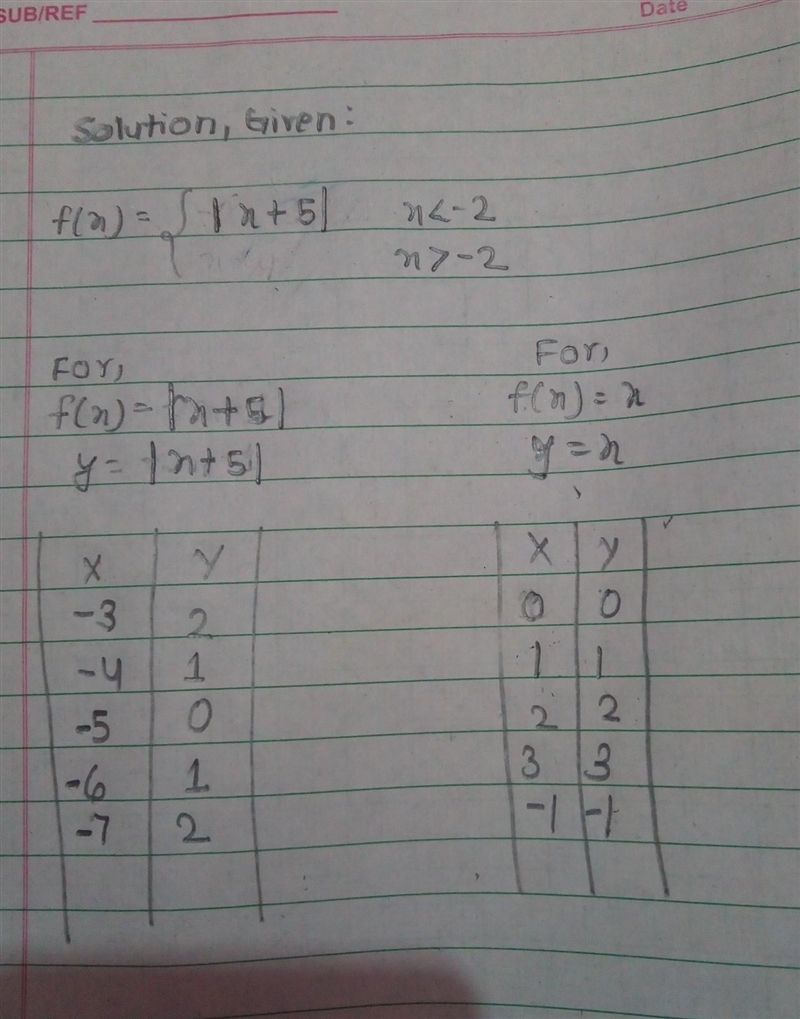 SUB/REF
Date
Solution, Given:
f(x) = { |x + 5| x < -2
x > -2
For,
f(x) = |x + 5|
y = |x + 5|
For,
f(x) = x
y = x
X Y
-3 2
-4 1
-5 0
-6 1
-7 2
X Y
0 0
1 1
2 2
3 3
-1 -1